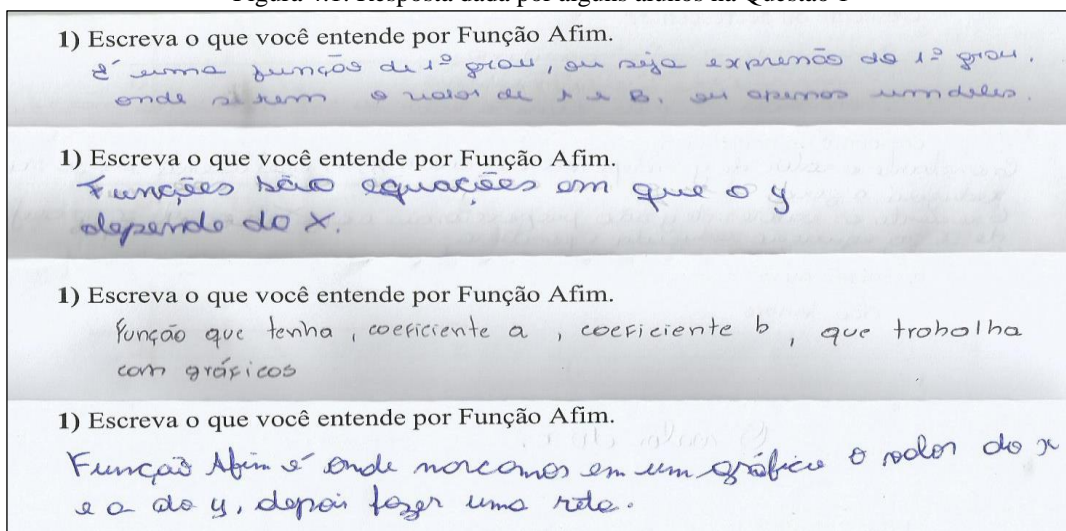 Figura 4.1: Resposta dada por alguns alunos na Questão 1
1) Escreva o que você entende por Função Afim.
É uma função de 1º grau, ou seja expressão do 1º grau,
onde se tem o valor de A e B. ou apenas um deles.
1) Escreva o que você entende por Função Afim.
Funções são equações em que o y
depende do x.
1) Escreva o que você entende por Função Afim.
Função que tenha, coeficiente a, coeficiente b, que trabalha
com gráficos
1) Escreva o que você entende por Função Afim.
Função Afim é onde marcamos em um gráfico o valor do x
e o do y, depois fazer uma reta.